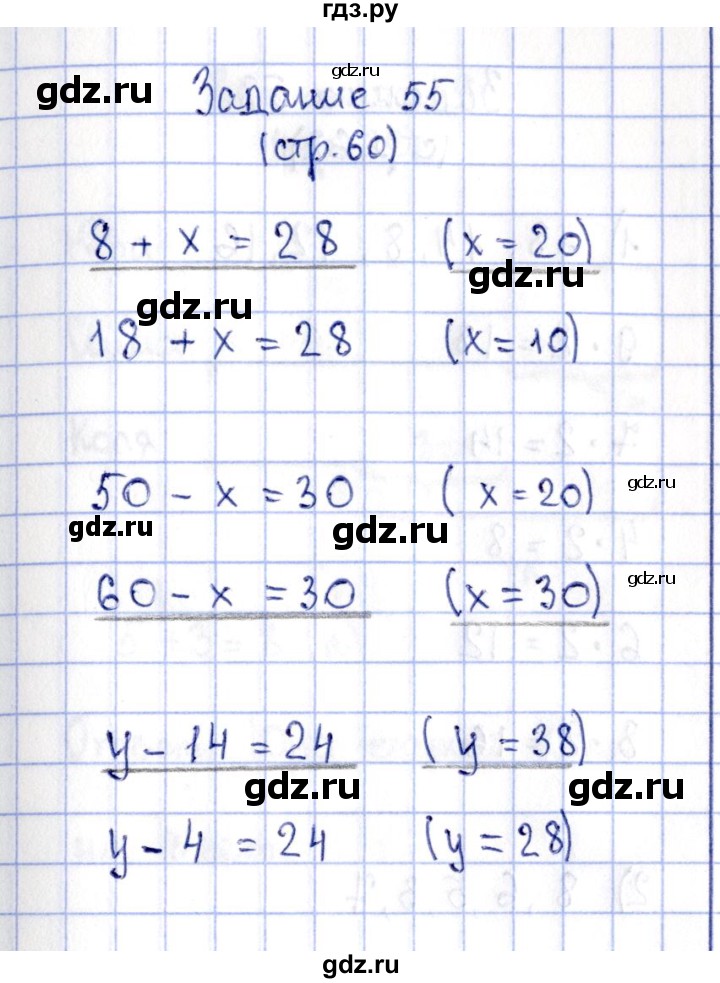 гдз.ру
gdz.ru
gdz.ru
Задание 55
(стр. 60)
8 + x = 28 (x = 20)
gdz.ru
gdz.ru
18 + x = 28 (x = 10)
50 - x = 30 (x = 20) gdz.ru
gdz.ru
gdz.ru
60 - x = 30 (x = 30) gdz.ru
y - 14 = 24 (y = 38)
gdz.ru
gdz.ru
y - 4 = 24 (y = 28)
gdz.ru